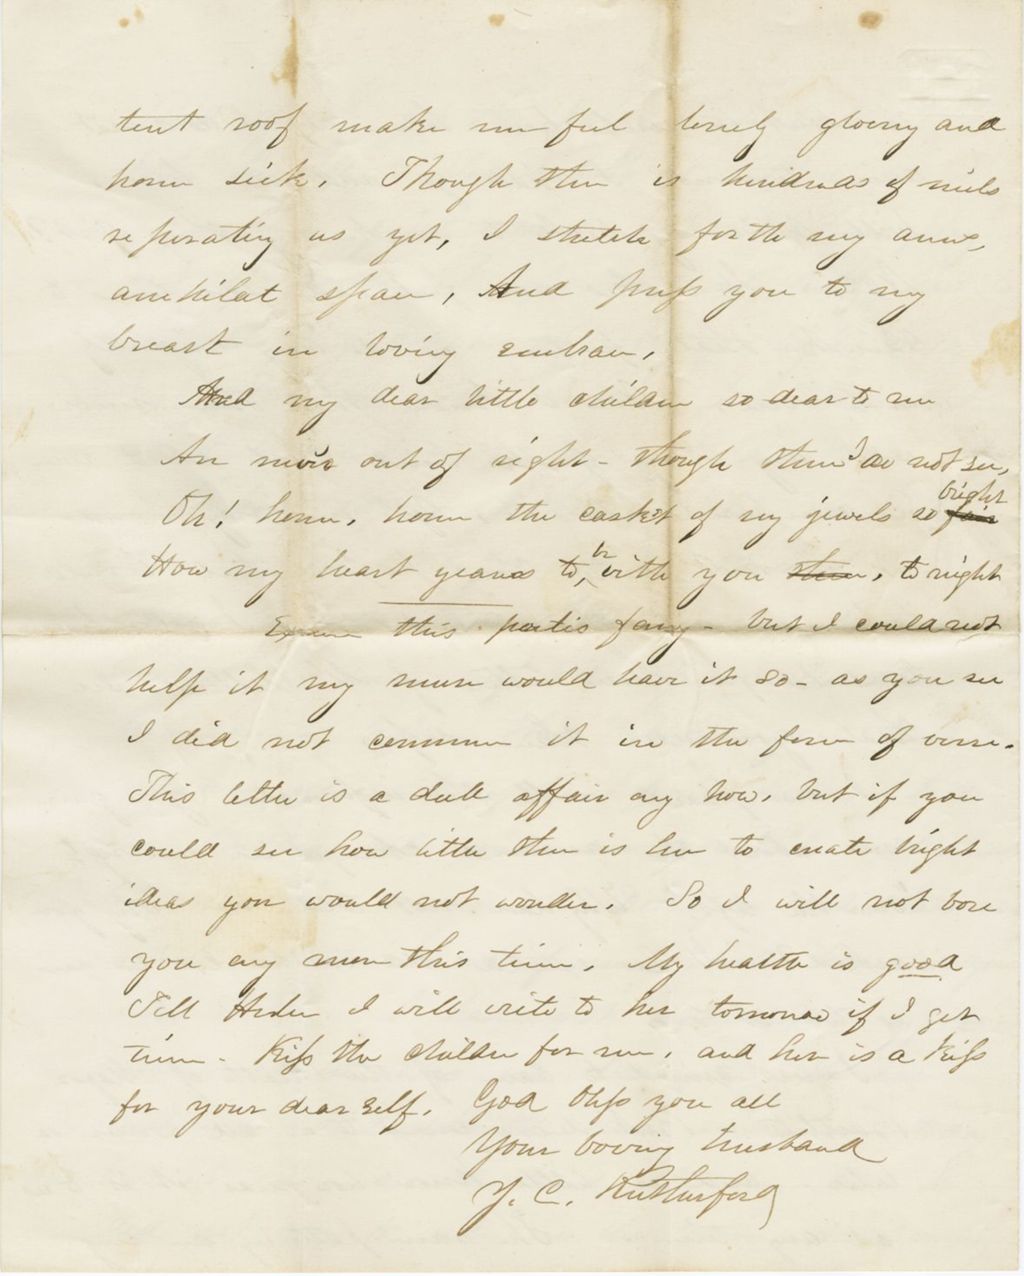 tent roof make me feel lonely gloomy and
home sick. Though there is hundreds of miles
seperating us yet, I stretch forth my arms,
annihilate space, And press you to my
breast in loving embrace.
And my dear little children so dear to me
Are now out of sight - though them I do not see,
Oh! home, home the casket of my jewels so fair bright
How my heart yearns to be with you there, to night
Excuse this poetic fancy - but I could not
help it my muse would have it so - as you see
I did not commence it in the form of verse.
This letter is a dull affair any how, but if you
could see how little there is here to create bright
ideas you would not wonder. So I will not bore
you any more this time. My health is good
Tell Helen I will write to her tomorrow if I get
time - Kiss the children for me, and here is a kiss
for your dear self. God bless you all
Your loving husband
J. C. Rutherford